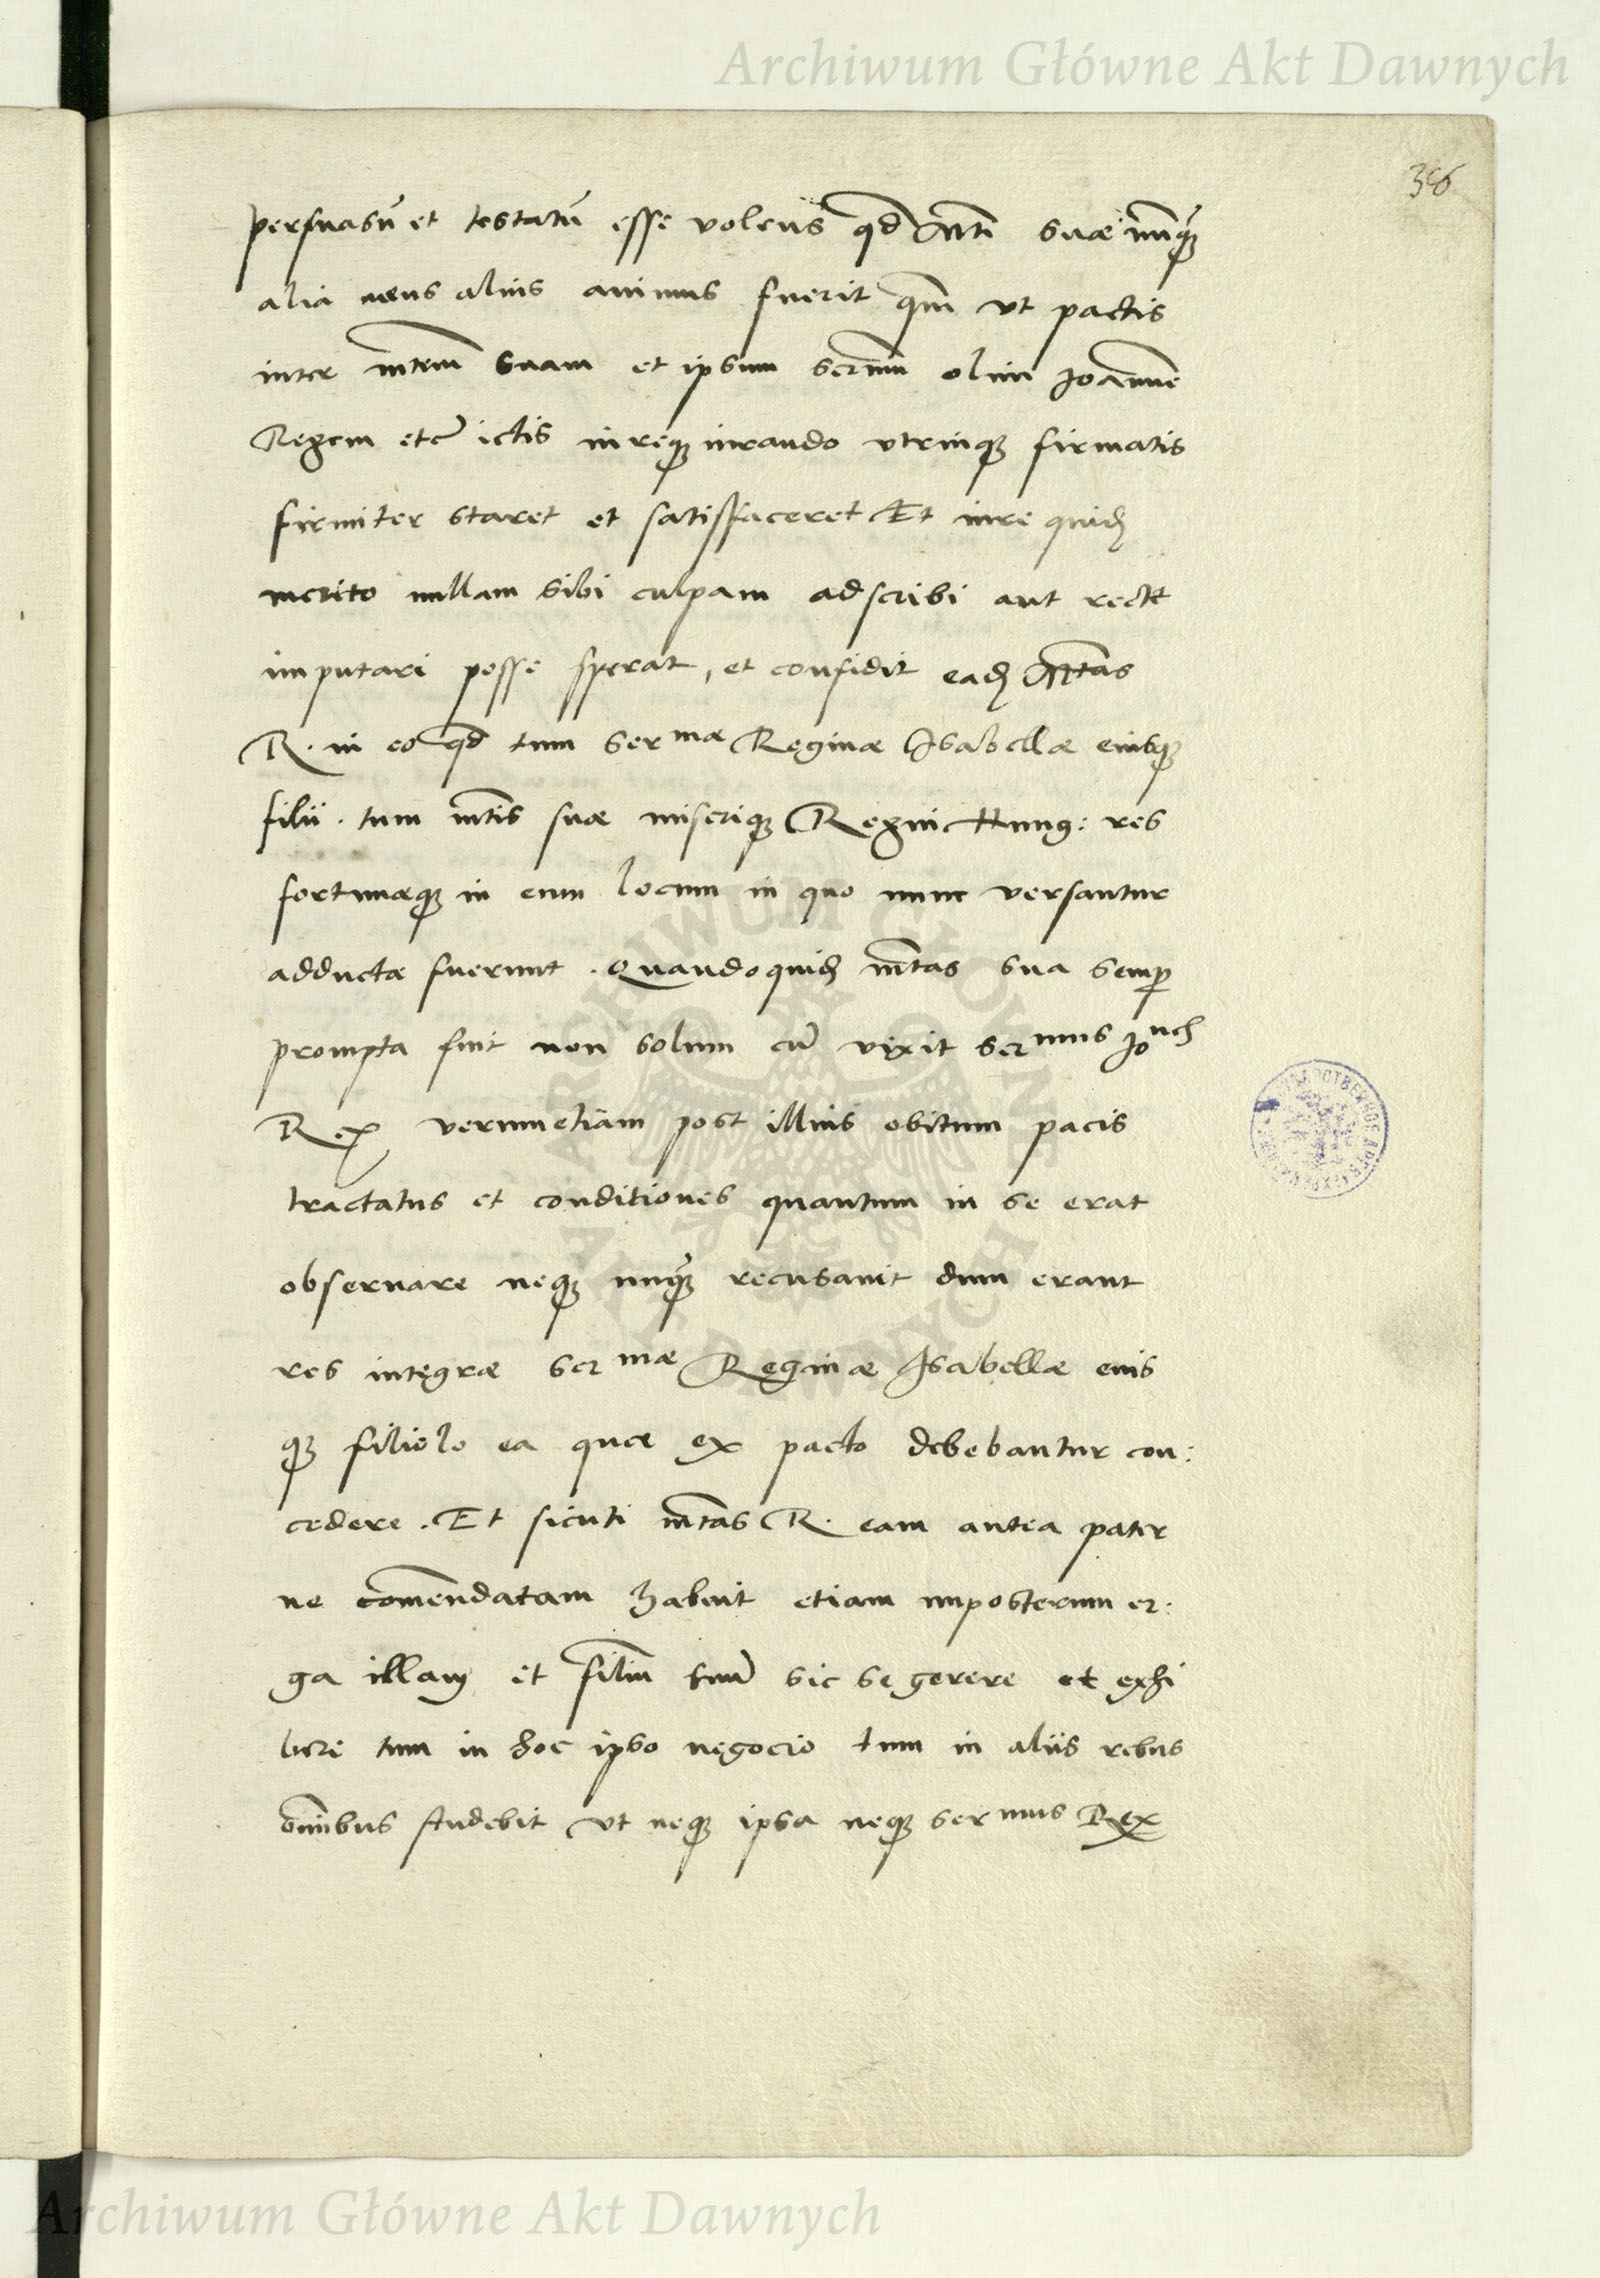 Archiwum Główne Akt Dawnych
persuasū et testatū esse volens qd Mti suae nūq̃
alia mens alius animus fuerit qm̄ vt pactis
inter mtem suam et ipsum sermū olim Joannē
Regem etc̄ ictis iureq iurando vtrinq firmatis
firmiter staret et satisfaceret Et iure quid
merito nullam sibi culpam adscribi aut recte
imputari posse sperat, et confidit ead Mtas
R. in eo qd tum ser mae Reginae Isabellae eiusq
filii . tum mtis suae miseriq Regni Hung: res
fortunaeq in eum locum in quo nunc versantur
adductae fuerunt . Quandoquid mtas sua semp
prompta fuit non solum cū vixit ser mus
Rex verumetiam post illius obitum pacis
tractatus et conditiones quantum in se erat
obseruare neq nuq̃ recusauit dum erant
res integrae ser mae Reginae Isabellae eius
q filiolo ea quae ex pacto debebantur con:
cedere . Et sicuti mtas R. eam antea pater
ne comendatam habuit etiam imposterum er:
ga illam et filiū suū sic se gerere et exhi
bere tum in hoc ipso negocio tum in aliis rebus
omnibus studebit vt neq ipsa neq ser mus Rex
Archiwum Główne Akt Dawnych